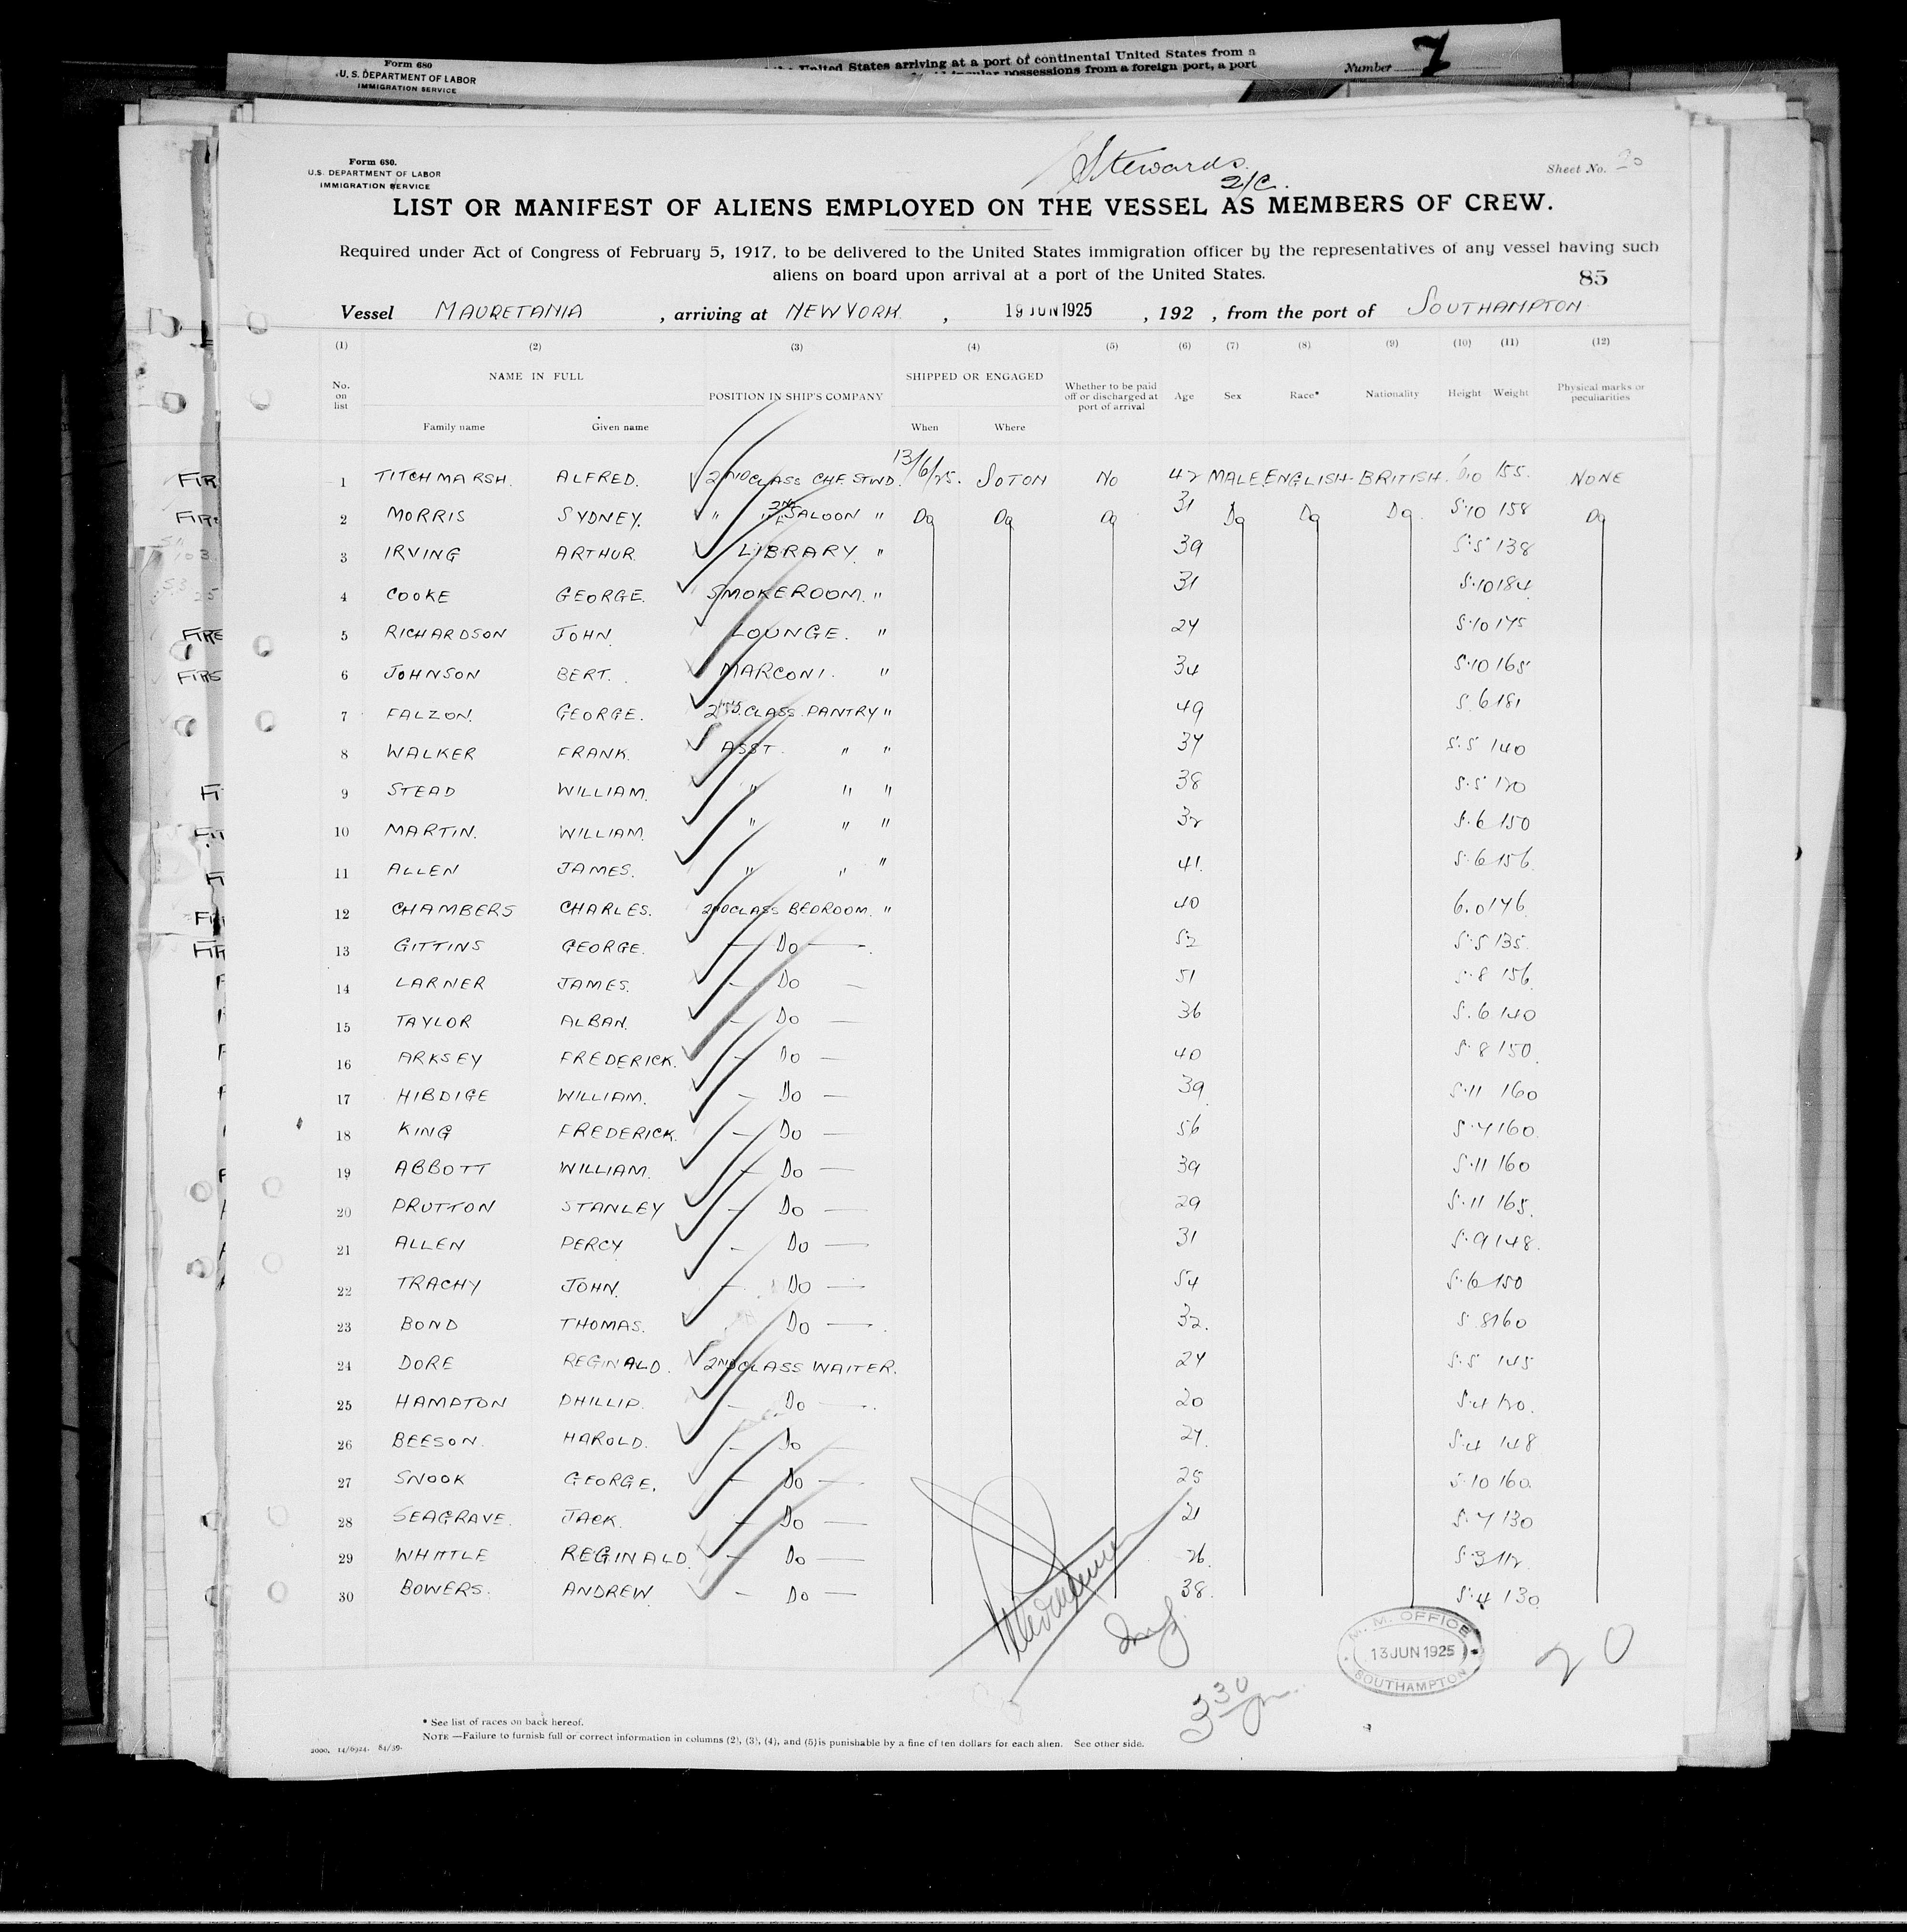 Form 680
U. S. DEPARTMENT OF LABOR
IMMIGRATION SERVICE
United States arriving at a port of continental United States from a
possessions from a foreign port, a port
Number 7
Form 680.
U.S. DEPARTMENT OF LABOR
IMMIGRATION SERVICE
Stewards
2/C.
Sheet No. 20
LIST OR MANIFEST OF ALIENS EMPLOYED ON THE VESSEL AS MEMBERS OF CREW.
Required under Act of Congress of February 5, 1917, to be delivered to the United States immigration officer by the representatives of any vessel having such
aliens on board upon arrival at a port of the United States.
85
Vessel MAURETANIA, arriving at NEW YORK, 19 JUN 1925, 192 , from the port of SOUTHAMPTON
(1) (2) (3) (4) (5) (6) (7) (8) (9) (10) (11) (12)
No. on list NAME IN FULL POSITION IN SHIP'S COMPANY SHIPPED OR ENGAGED Whether to be paid off or discharged at port of arrival Age Sex Race* Nationality Height Weight Physical marks or peculiarities
Family name Given name When Where
1 TITCHMARSH. ALFRED. 2ND CLASS CHF. STWD. 13/6/25. SOTON NO 42 MALE. ENGLISH - BRITISH. 155. NONE
2 MORRIS SYDNEY. " " 2ND SALOON " Do Do Do 31 Do Do Do 5.10 158 Do
3 IRVING ARTHUR. LIBRARY. " 39 5.5 138
4 COOKE GEORGE. SMOKEROOM. " 31 5.10 184
5 RICHARDSON JOHN. LOUNGE. " 27 5.10 175
6 JOHNSON BERT. MARCONI. " 34 5.10 165
7 FALZON. GEORGE. 2ND CLASS PANTRY " 49 5.6 181
8 WALKER FRANK. ASST. " " 37 5.5 140
9 STEAD WILLIAM. " " " 38 5.5 120
10 MARTIN. WILLIAM. " " " 32 5.6 150
11 ALLEN JAMES. " " " 41. 5.6 156.
12 CHAMBERS CHARLES. 2ND CLASS BEDROOM. " 40 6.0 176
13 GITTINS GEORGE. — Do —. 52 5.5 135.
14 LARNER JAMES. — Do — 51 5.8 156.
15 TAYLOR ALBAN. — Do — 36 5.6 140
16 ARKSEY FREDERICK. — Do — 40 5.8 150.
17 HIBDIGE WILLIAM. — Do — 39. 5.11 160
18 KING FREDERICK. — Do — 56 5.7 160.
19 ABBOTT WILLIAM. — Do — 39 5.11 160
20 PRUTTON STANLEY — Do — 29 5.11 165.
21 ALLEN PERCY — Do — 31 5.9 148.
22 TRACHY JOHN. — Do — 54 5.6 150
23 BOND THOMAS. Do —. 32. 5.8 160
24 DORE REGINALD. 2ND CLASS WAITER. 27 5.5 145
25 HAMPTON PHILLIP. — Do —. 20 5.4 120.
26 BEESON. HAROLD. — Do — 27. 5.4 148
27 SNOOK GEORGE. — Do — 25 5.10 160.
28 SEAGRAVE. JACK. — Do — 21 5.7 130
29 WHITTLE REGINALD. — Do — 26. 5.3 112.
30 BOWERS. ANDREW. — Do — 38. 5.4 130.
M. M. OFFICE
13 JUN 1925
SOUTHAMPTON
20
3 30
* See list of races on back hereof.
NOTE —Failure to furnish full or correct information in columns (2), (3), (4), and (5) is punishable by a fine of ten dollars for each alien. See other side.
2000. 14/6924. 84/39.